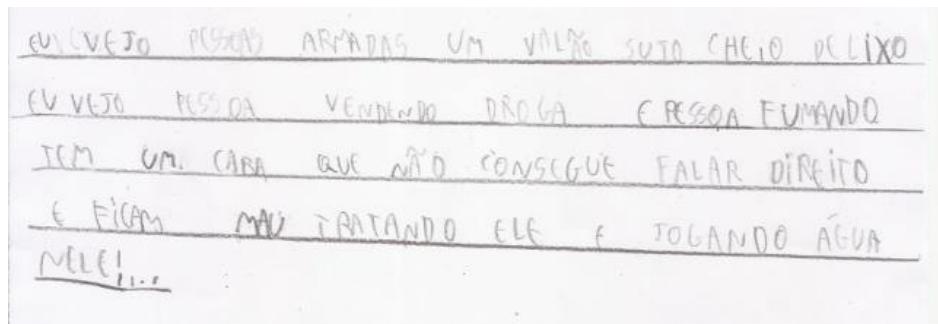 EU VEJO PESSOAS ARMADAS UM VALÃO SUJO CHEIO DE LIXO
EU VEJO PESSOA VENDENDO DROGA E PESSOA FUMANDO
TEM UM CARA QUE NÃO CONSEGUE FALAR DIREITO
E FICAM MAU TRATANDO ELE E JOGANDO ÁGUA
NELE!...